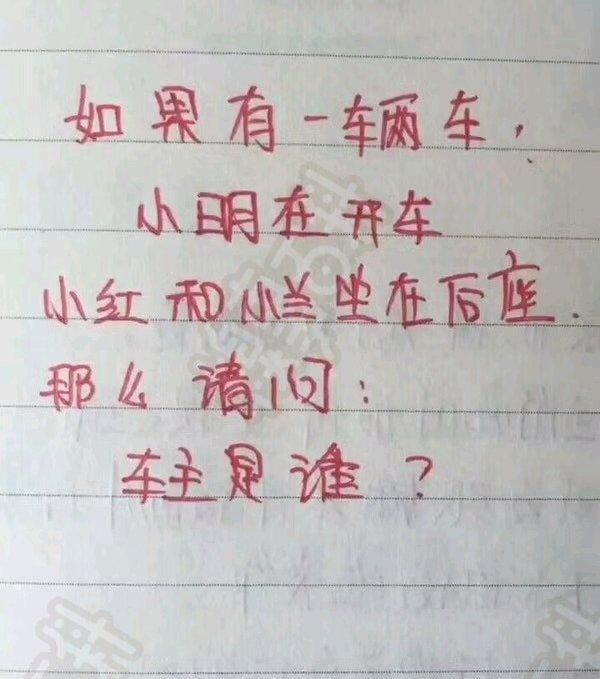 如果有一辆车，
小明在开车
小红和小兰坐在后座．
那么 请问：
车主是谁？